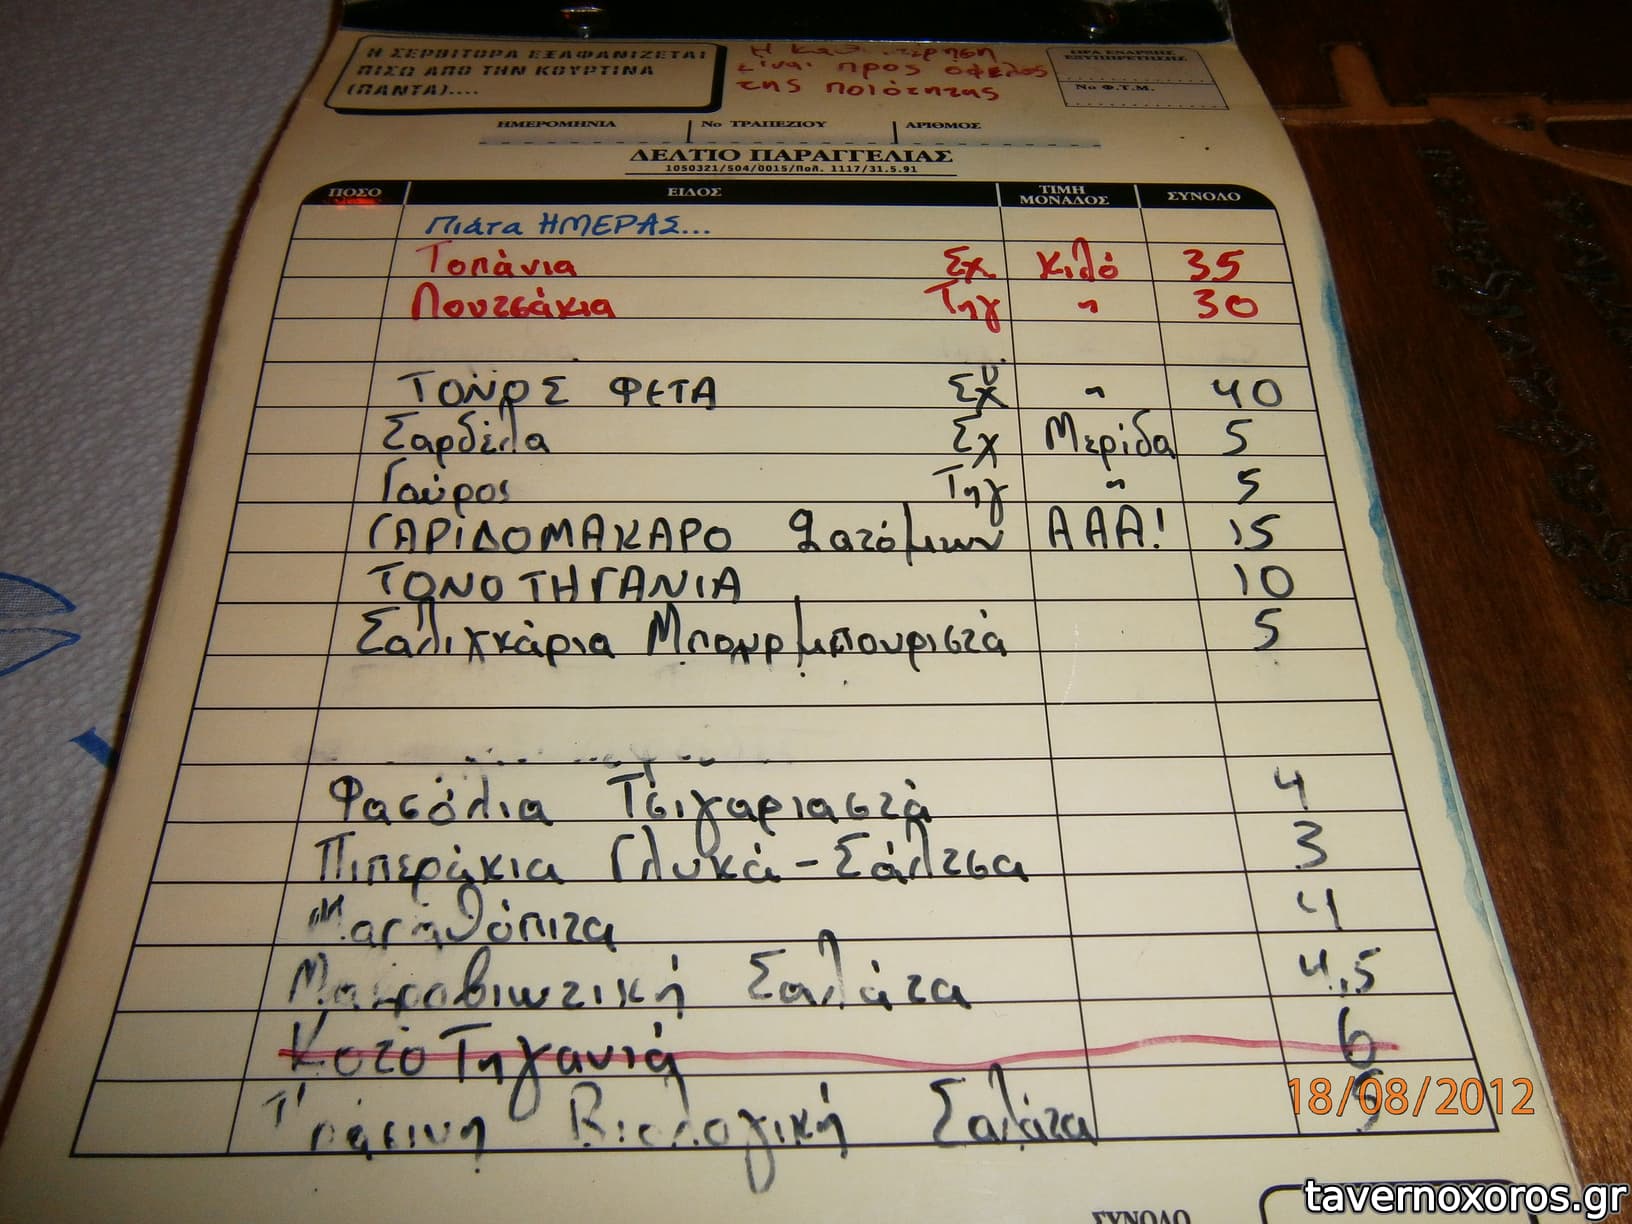 Η ΣΕΡΒΙΤΟΡΑ ΕΞΑΦΑΝΙΖΕΤΑΙ
ΠΙΣΩ ΑΠΟ ΤΗΝ ΚΟΥΡΤΙΝΑ
(ΠΑΝΤΑ)....
Η καθυστέρηση
είναι προς όφελος
της ποιότητας
ΩΡΑ ΕΝΑΡΞΗΣ
ΕΞΥΠΗΡΕΤΗΣΗΣ
Νο Φ.Τ.Μ.
ΗΜΕΡΟΜΗΝΙΑ Νο ΤΡΑΠΕΖΙΟΥ ΑΡΙΘΜΟΣ
ΔΕΛΤΙΟ ΠΑΡΑΓΓΕΛΙΑΣ
1050321/504/0015/Πολ. 1117/31.5.91
ΠΟΣΟ ΕΙΔΟΣ ΤΙΜΗ ΜΟΝΑΔΟΣ ΣΥΝΟΛΟ
Πιάτα ΗΜΕΡΑΣ...
Τοπάνια Σχ. Κιλό 35
Λουτσάκια Τηγ " 30
ΤΟΝΟΣ ΦΕΤΑ Σχ " 40
Σαρδέλα Σχ Μερίδα 5
Γαύρος Τηγ " 5
ΓΑΡΙΔΟΜΑΚΑΡΟ 2ατόμων ΑΑΑ! 15
ΤΟΝΟ ΤΗΓΑΝΙΑ 10
Σαλιγκάρια Μπουρμπουριστά 5
Φασόλια Τσιγαριαστά 4
Πιπεράκια Γλυκά - Σάλτσα 3
Μαραθόπιτα 4
Μακροβιωτική Σαλάτα 4,5
Κοτο Τηγανιά 6
Πράσινη Βιολογική Σαλάτα 5
18/08/2012
ΣΥΝΟΛΟ
tavernoxoros.gr